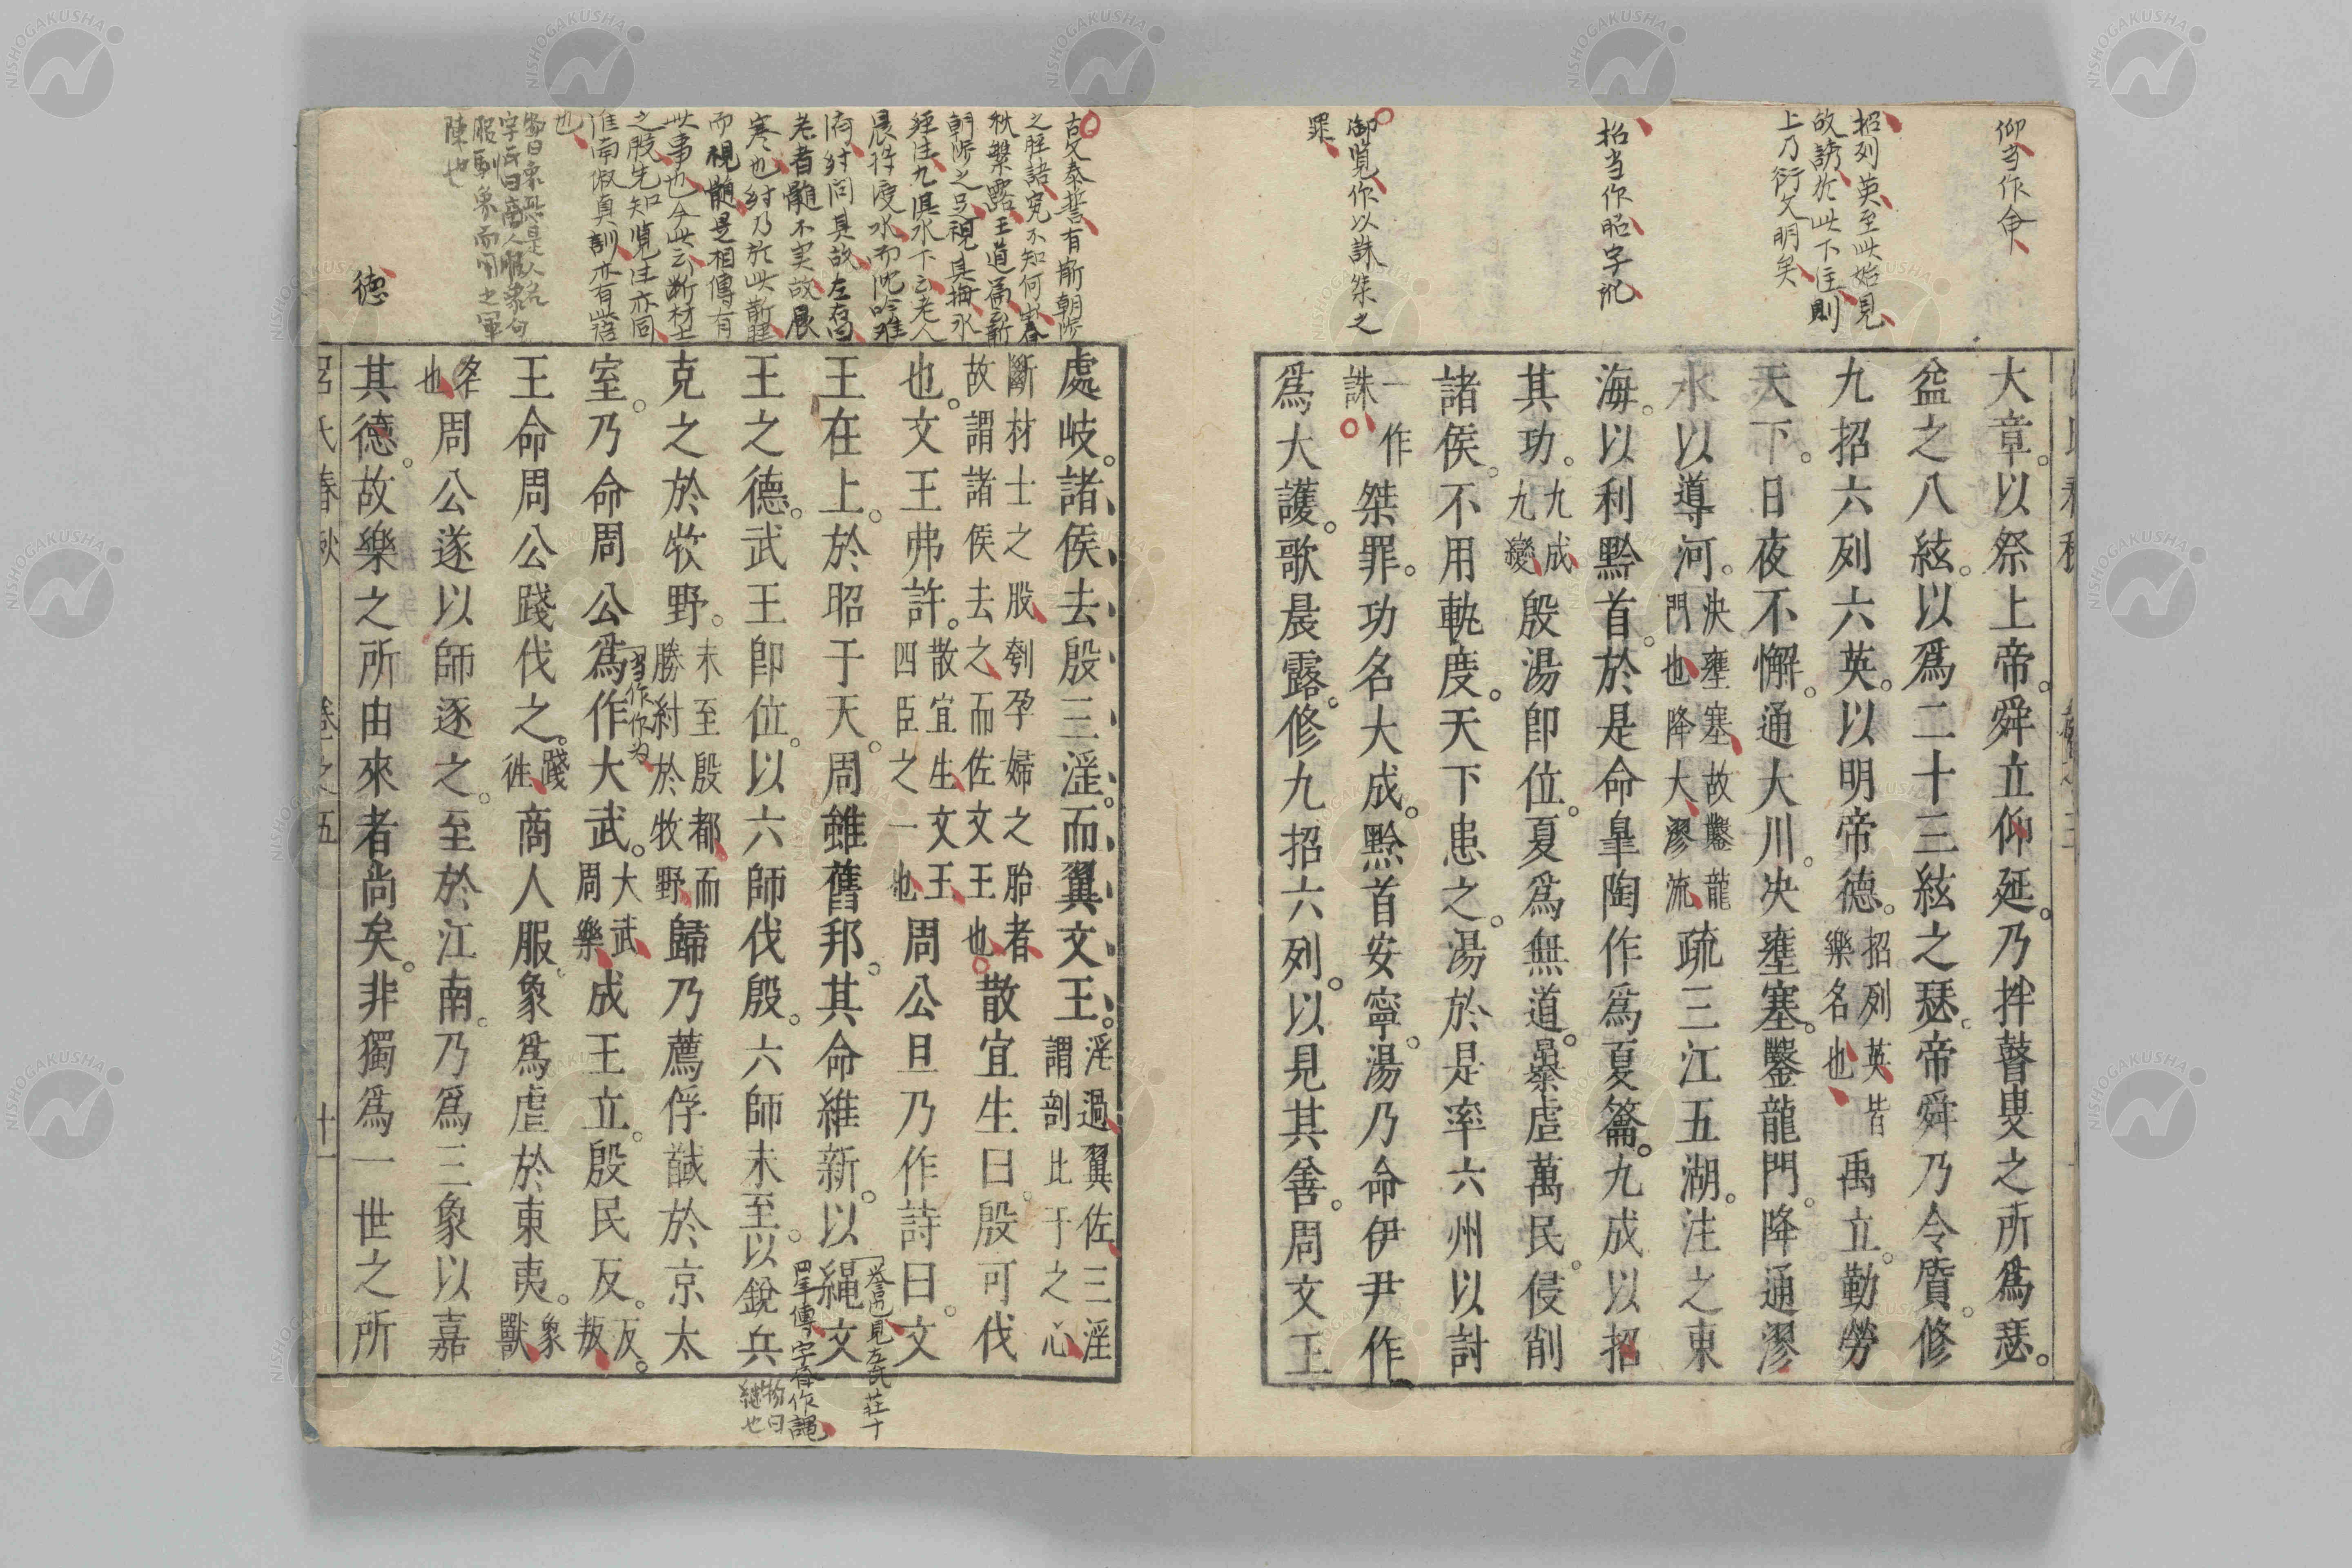 仰当作命
招列英至此始見
故誘於此下注則
上乃衍文明矣
招当作昭字訛
御覧作以誅桀之
罪
大章。以祭上帝。舜立仰延。乃拌瞽叟之所爲瑟。
益之八絃。以爲二十三絃之瑟。帝舜乃令質。修
九招六列六英。以明帝德。招列英皆樂名也禹立。勤勞
天下。日夜不懈。通大川。决壅塞。鑿龍門。降通漻
水以導河。決壅塞故鑿龍門也降大漻流疏三江五湖。注之東
海。以利黔首。於是命皐陶作爲夏籥。九成以招
其功。九成九變殷湯卽位。夏爲無道。暴虐萬民。侵削
諸侯。不用軌度。天下患之。湯於是率六州以討
一作誅桀罪。功名大成。黔首安寧。湯乃命伊尹作
爲大護。歌晨露。修九招六列。以見其善。周文王
古文泰誓有斮朝涉
之脛語究不知何出春
秋繁露王道篇云斮
朝涉之足視其拇水
經注九淇水下云老人
晨將渡水而沈吟難
濟紂問其故左右曰
老者髓不実故晨
寒也紂乃於此斮脛
而視髓是相傳有
此事也今此云断材士
之股先知覧注亦同
淮南俶真訓亦有此語
也
服
陳也
德
處岐。諸侯去殷三淫。而翼文王。淫過翼佐三淫謂剖比干之心
斷材士之股刳孕婦之胎者故謂諸侯去之而佐文王也散宜生曰。殷可伐
也。文王弗許。散宜生文王四臣之一也周公旦乃作詩曰。文
王在上。於昭于天。周雖舊邦。其命維新。以繩文
誉也見左氏莊十
四年傳字春作譝
王之德。武王卽位。以六師伐殷。六師未至。以銳兵
物曰
継也
克之於牧野。未至殷都而勝紂於牧野歸乃薦俘馘於京太
室。乃命周公爲作大武。大武周樂成王立。殷民反。反叛
当作作为
王命周公踐伐之。踐徃商人服象爲虐於東夷。象獸
名也周公遂以師逐之。至於江南。乃爲三象以嘉
其德。故樂之所由來者尚矣。非獨爲一世之所
呂氏春秋 卷之五 十一